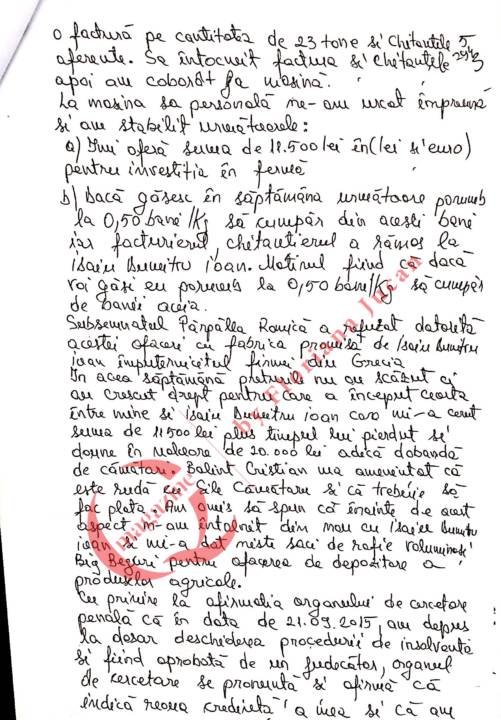 o factură pe cantitata de 23 tone si Chitantele 5
aferente. Sa întocmit factura si Chitantele
apoi am coborât la masină.
La masina sa personală ne-am urcat împreună
si am stabilit următoarele:
a) Îmi oferă suma de 11.500 lei în (lei si euro)
pentru investitia în fermă
b) Dacă găsesc în săptămâna următoare porumb
la 0,50 bani/Kg să cumpăr din acesti bani
iar facturierul, chitantierul a rămos la
Isaiu Dumitru Ioan. Motivul fiind că dacă
voi găsi eu porumb la 0,50 bani/Kg să cumpăr
de banii aceia.
Subsemnatul Pârpălea Romică a refuzat datorită
acestei afaceri cu fabrica promisă de Isaiu Dumitru
Ioan împuternicitul firmei din Grecia
In acea săptămână preturile nu au scăzut ci
au crescut drept pentru care a început cearta
între mine si Isaiu Dumitru Ioan care mi-a cerut
suma de 11500 lei plus timpul lui pierdut si
daune în valoare de 20.000 lei adică dobândă
de cămătari. Balint Cristian ma amenintat că
este rudă cu Gile Cămătaru si că trebuie să
fac plata. Am omis să spun că înainte de acest
aspect m-am întâlnit din nou cu Isaiu Dumitru
Ioan si mi-a dat niste saci de rafie voluminosi
Big Beguri pentru afacerea de depozitare a
produselor agricole.
Cu privire la afirmatia organului de cercetare
penală că în data de 21.09.2015, am depus
la dosar deschiderea procedurii de insolventă
si fiind aprobată de un judecător, organul
de cercetare se pronuntă si afirmă că
indică reaua credintă a mea si că am
Magazine by Floriana Jucan